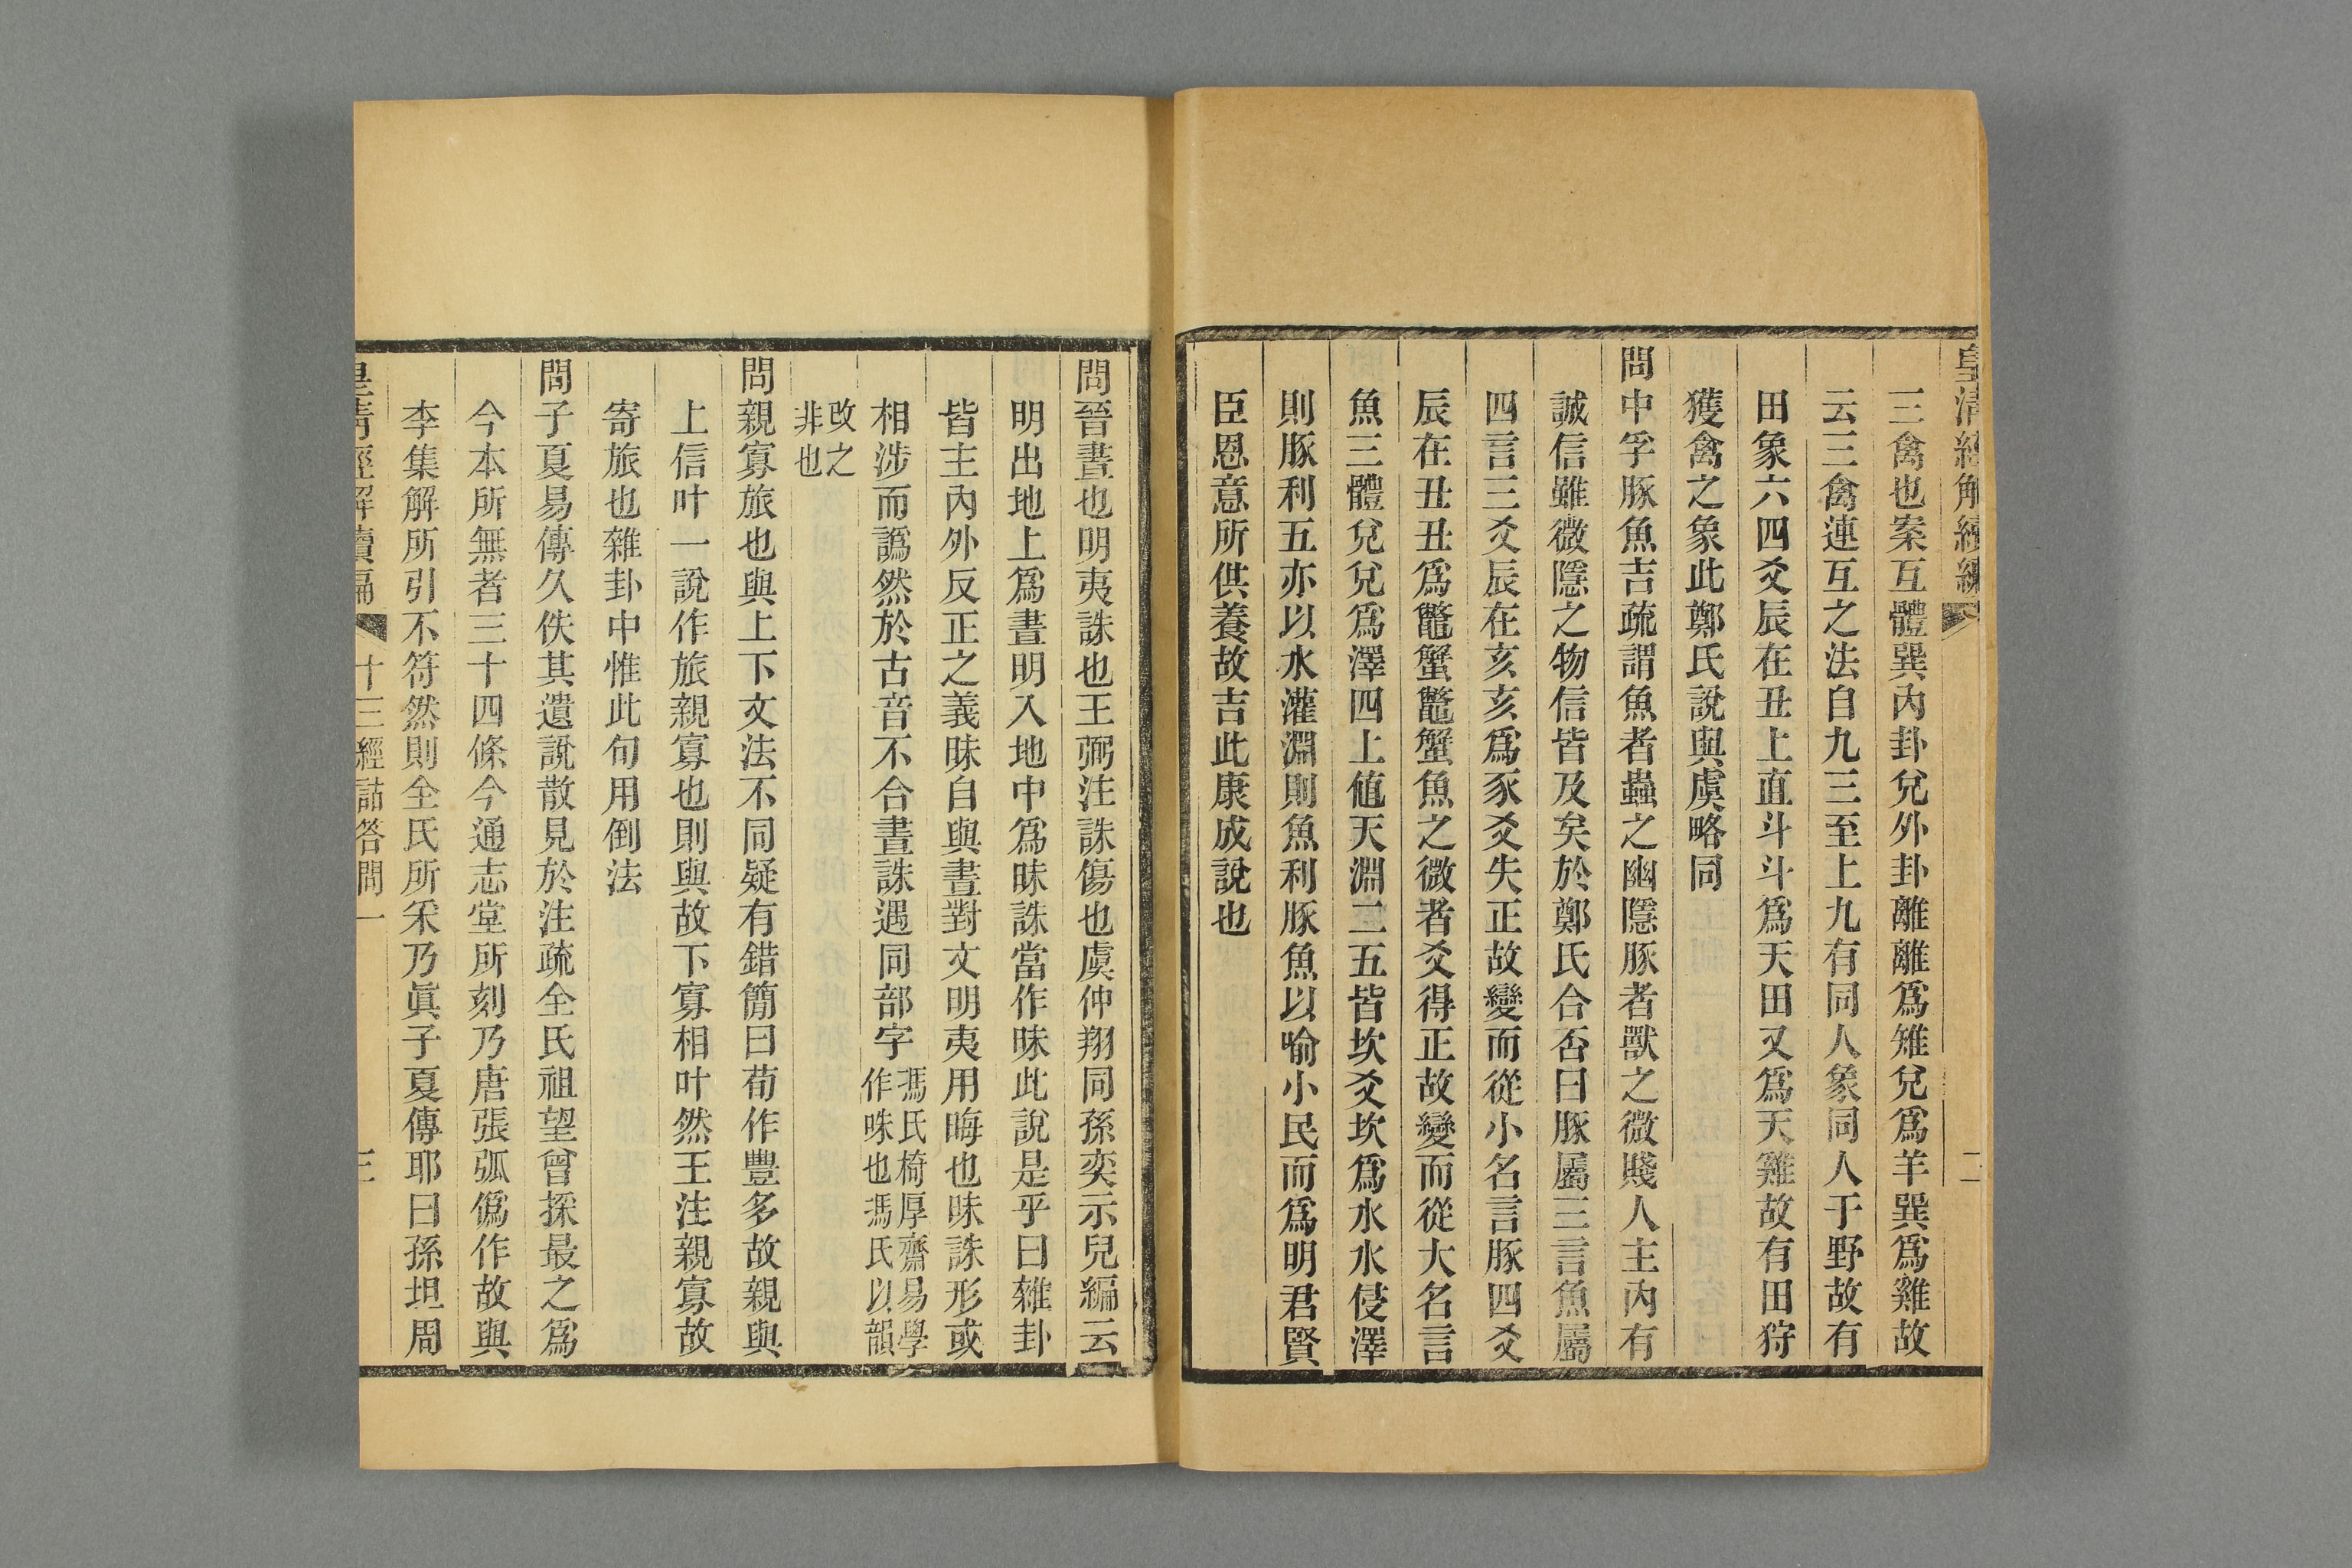 皇清經解續編 二
三禽也案互體巽內卦兌外卦離離爲雉兌爲羊巽爲雞故
云三禽連互之法自九三至上九有同人象同人于野故有
田象六四爻辰在丑上直斗斗爲天田又爲天雞故有田狩
獲禽之象此鄭氏說與虞略同
問中孚豚魚吉疏謂魚者蟲之幽隱豚者獸之微賤人主內有
誠信雖微隱之物信皆及矣於鄭氏合否曰豚屬三言魚屬
四言三爻辰在亥亥爲豕爻失正故變而從小名言豚四爻
辰在丑丑爲鼈蟹鼈蟹魚之微者爻得正故變而從大名言
魚三體兌兌爲澤四上値天淵二五皆坎爻坎爲水水侵澤
則豚利五亦以水灌淵則魚利豚魚以喻小民而爲明君賢
臣恩意所供養故吉此康成說也
問晉晝也明夷誅也王弼注誅傷也虞仲翔同孫奕示兒編云
明出地上爲晝明入地中爲昧誅當作昧此說是乎曰雜卦
皆主內外反正之義昧自與晝對文明夷用晦也昧誅形或
相涉而譌然於古音不合晝誅遇同部字馮氏椅厚齋易學
作咮也馮氏以韻
改之
非也
問親寡旅也與上下文法不同疑有錯簡曰荀作豐多故親與
上信叶一說作旅親寡也則與故下寡相叶然王注親寡故
寄旅也雜卦中惟此句用倒法
問子夏易傳久佚其遺說散見於注疏全氏祖望曾採最之爲
今本所無者三十四條今通志堂所刻乃唐張弧僞作故與
李集解所引不符然則全氏所采乃眞子夏傳耶曰孫坦周
皇清經解續編 十三經詁答問一 三